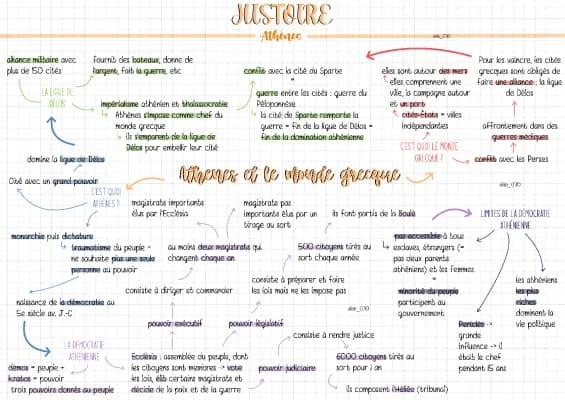 JUSTOIRE
Athènes
alliance militaire avec
plus de 50 cités
fournis des bateaux, donne de
l'argent, fait la guerre, etc.
LA LIGUE DE
DÉLOS
impérialisme athénien et thalassocratie
Athènes s'impose comme chef du
monde grecque
ils s'emparent de la ligue de
Délos pour embellir leur cité
conflit avec la cité du Sparte
=
guerre entre les cités : guerre du
Péloponnèse
la cité de Sparte remporte la
guerre = fin de la ligue de Délos =
fin de la domination athénienne
elles sont autour des mers
elles comprennent une
ville, la campagne autour
et un port
cités-États = villes
indépendantes
C'EST QUOI LE MONDE
GRECQUE ?
Pour les vaincre, les cités
grecques sont obligés de
faire une alliance : la ligue
de Délos
affrontement dans des
guerres médiques
conflit avec les Perses
domine la ligue de Délos
Cité avec un grand pouvoir
Athènes et le monde grecque
C'EST QUOI
ATHÈNES ?
monarchie puis dictature
traumatisme du peuple =
ne souhaite plus une seule
personne au pouvoir
naissance de la démocratie au
5e siècle av. J.-C
LA DÉMOCRATIE
ATHÉNIENNE
démos = peuple +
kratos = pouvoir
trois pouvoirs donnés au peuple
magistrats importants
élus par l'Ecclésia
magistrats pas
importants élus par un
tirage au sort
ils font partis de la Boulè
au moins deux magistrats qui
changent chaque an
500 citoyens tirés au
sort chaque année
consiste à diriger et commander
consiste à préparer et faire
les lois mais ne les impose pas
pouvoir exécutif
pouvoir législatif
consiste à rendre justice
Ecclésia : assemblée du peuple, dont
les citoyens sont membres -> vote
les lois, élit certains magistrats et
décide de la paix et de la guerre
pouvoir judiciaire
6000 citoyens tirés au
sort pour 1 an
ils composent l'Héliée (tribunal)
LIMITES DE LA DÉMOCRATIE
ATHÉNIENNE
pas accessible à tous :
esclaves, étrangers (=
pas deux parents
athéniens) et les femmes
=
minorité du peuple
participent au
gouvernement
les athéniens
les plus
riches
dominent la
vie politique
Périclès ->
grande
influence -> il
était le chef
pendant 15 ans